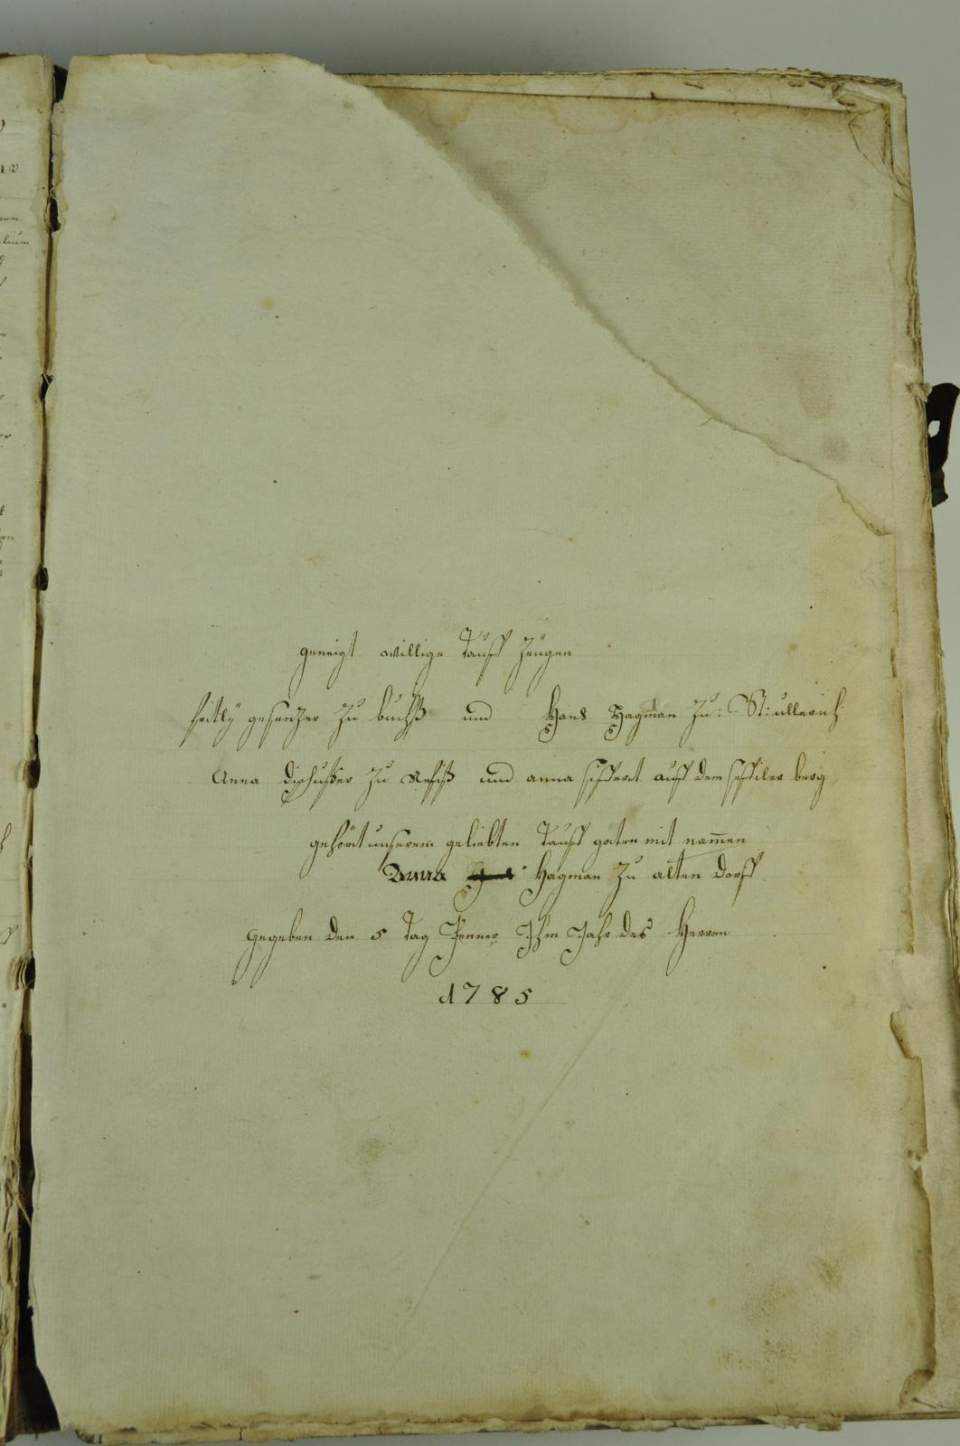 geneigt willige Tauff Zeugen
heitly gesenzer zu buchß und Hans Hagman zu: St: ullerich
Anna zu und anna auff dem berg
gehört unserem geliebten Tauff goten mit nam̄en
Anna Hagman zu alten dorff
gegeben den 5 tag Jenner Ihm Jahr des Herren
1785